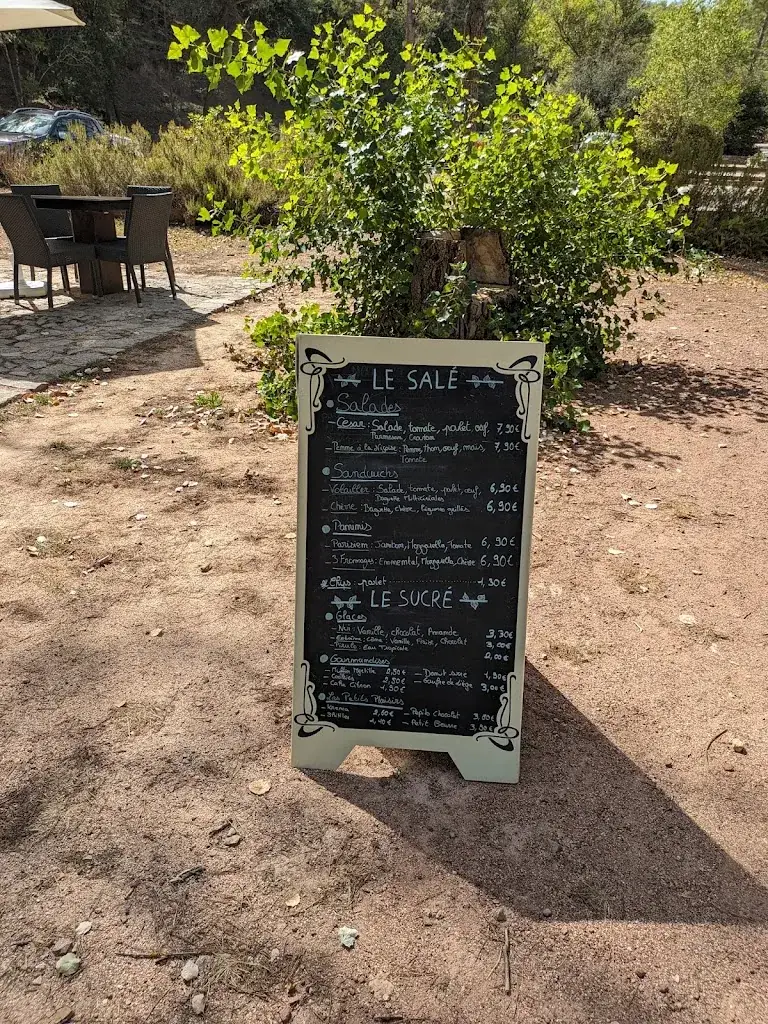 LE SALÉ
Salades
- César: Salade, tomate, poulet, oeuf, 7,90€
Parmesan, Croutons
- Pomme à la niçoise: Pomme, Thon, oeuf, maïs, 7,90€
Tomate
Sandwichs
- Volailler: Salade, tomate, poulet, oeuf, 6,90€
Baguette Multicéréales
- Chèvre: Baguette, chèvre, légumes grillés 6,90€
Paninis
- Parisien: Jambon, Mozzarella, Tomate 6,90€
- 3 Fromages: Emmental, Mozzarella, Chèvre 6,90€
Chips: paquet 1,30€
LE SUCRÉ
Glaces
- Nui: Vanille, chocolat, Amande 3,30€
- Extrême: Cône: Vanille, Fraise, Chocolat 3,00€
- Pirulo: Eau Tropicale 2,00€
Gourmandises
- Muffin Myrtille 2,50€ - Donut sucre 1,90€
- Cookies 2,50€ - Gaufre de Liège 3,00€
- Cake Citron 1,50€
Les Petits Plaisirs
2,60€ - Pepito Chocolat 3,00€
1,40€ - Petit Beurre